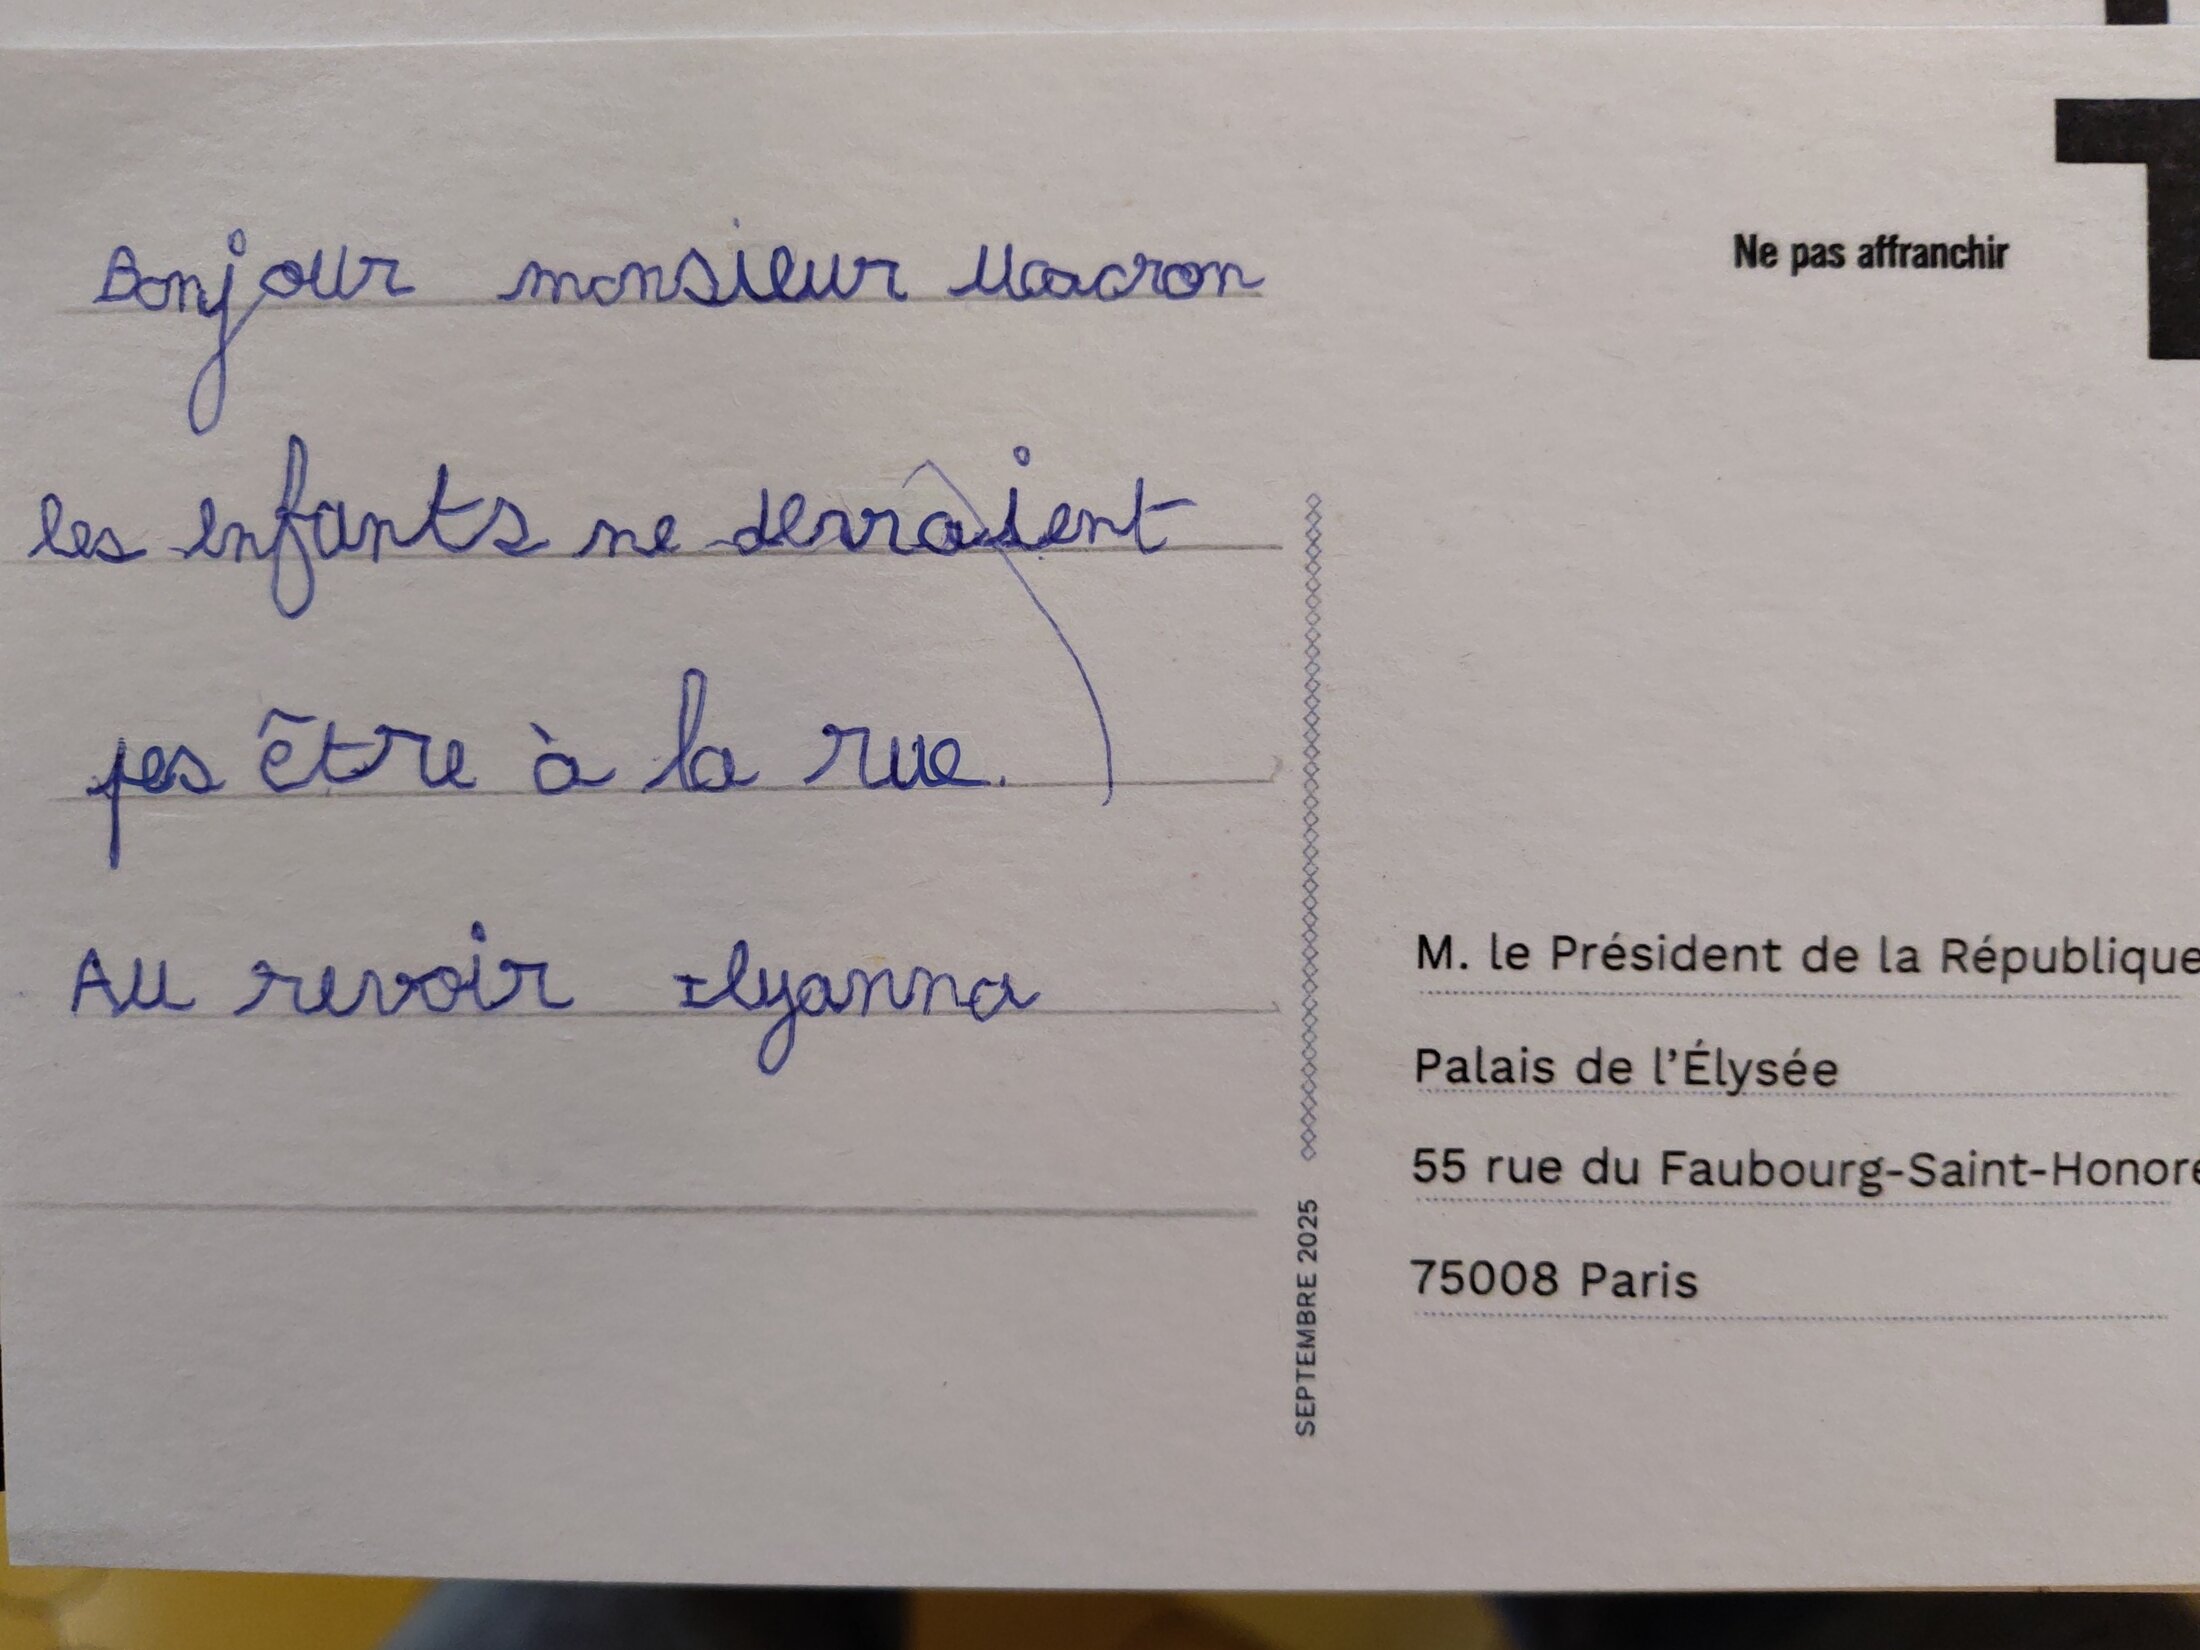 Bonjour monsieur Macron
les enfants ne devraient
pas être à la rue.
Au revoir Ilyanna
Ne pas affranchir
M. le Président de la République
Palais de l'Élysée
55 rue du Faubourg-Saint-Honoré
75008 Paris
SEPTEMBRE 2025